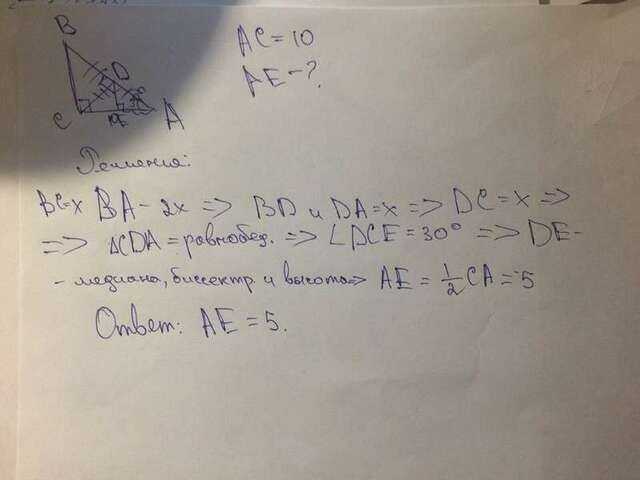 B
AC = 10
D
AE - ?
C
E
A
Решения:
BC=x BA - 2x => BD и DA = x => DC = x =>
=> ΔCDA = равнобед. => ∠DCE = 30° => DE -
- медиана, биссектр и высота => AE = 1/2 CA = 5
Ответ: AE = 5.